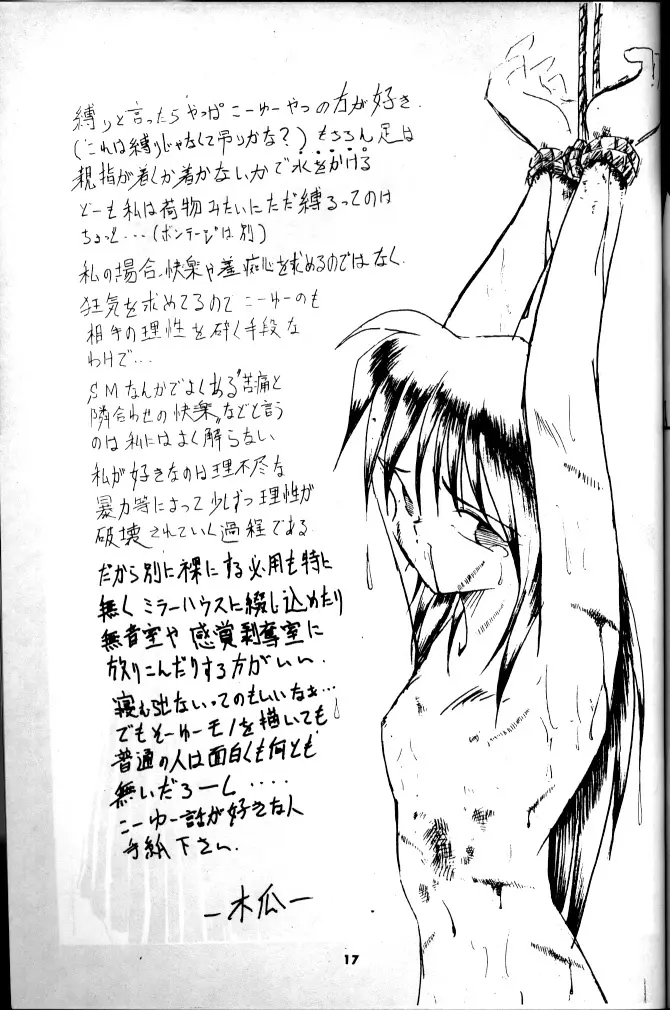 縛りと言ったらやっぱこーゆーやつの方が好き.
(これは縛りじゃなくて吊りかな?)もちろん足は
親指が着くか着かないかで水をかける
どーも私は荷物みたいにただ縛るってのは
ちょっと…(ボンテージは別)
私の場合、快楽や羞恥心を求めるのではなく、
狂気を求めてるので こーゆーのも
相手の理性を砕く手段な
わけで…
SMなんかでよくある"苦痛と
隣合わせの快楽"などと言う
のは私にはよく解らない
私が好きなのは理不尽な
暴力等によって少しずつ理性が
破壊されていく過程である
だから別に裸にする必用も特に
無く ミラーハウスに綴じ込めたり
無音室や 感覚剥奪室に
放りこんだりする方がいい.
寝むらせないってのもいいなぁ…
でもそーゆーモノを描いても
普通の人は面白くも何とも
無いだろーし ‥‥
こーゆー話が好きな人
手紙下さい.
ー木瓜ー
17